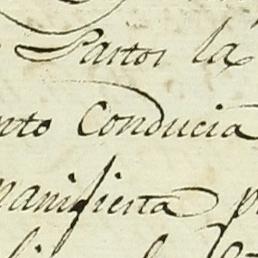 Partos la
nto Conducia
manifiesta p